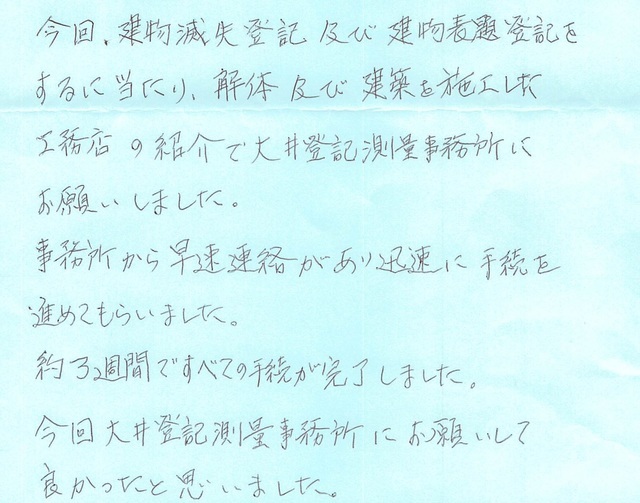 今回、建物滅失登記及び建物表題登記を
するに当たり、解体及び建築を施工した
工務店の紹介で大井登記測量事務所に
お願いしました。
事務所から早速連絡があり迅速に手続を
進めてもらいました。
約3週間ですべての手続が完了しました。
今回大井登記測量事務所にお願いして
良かったと思いました。